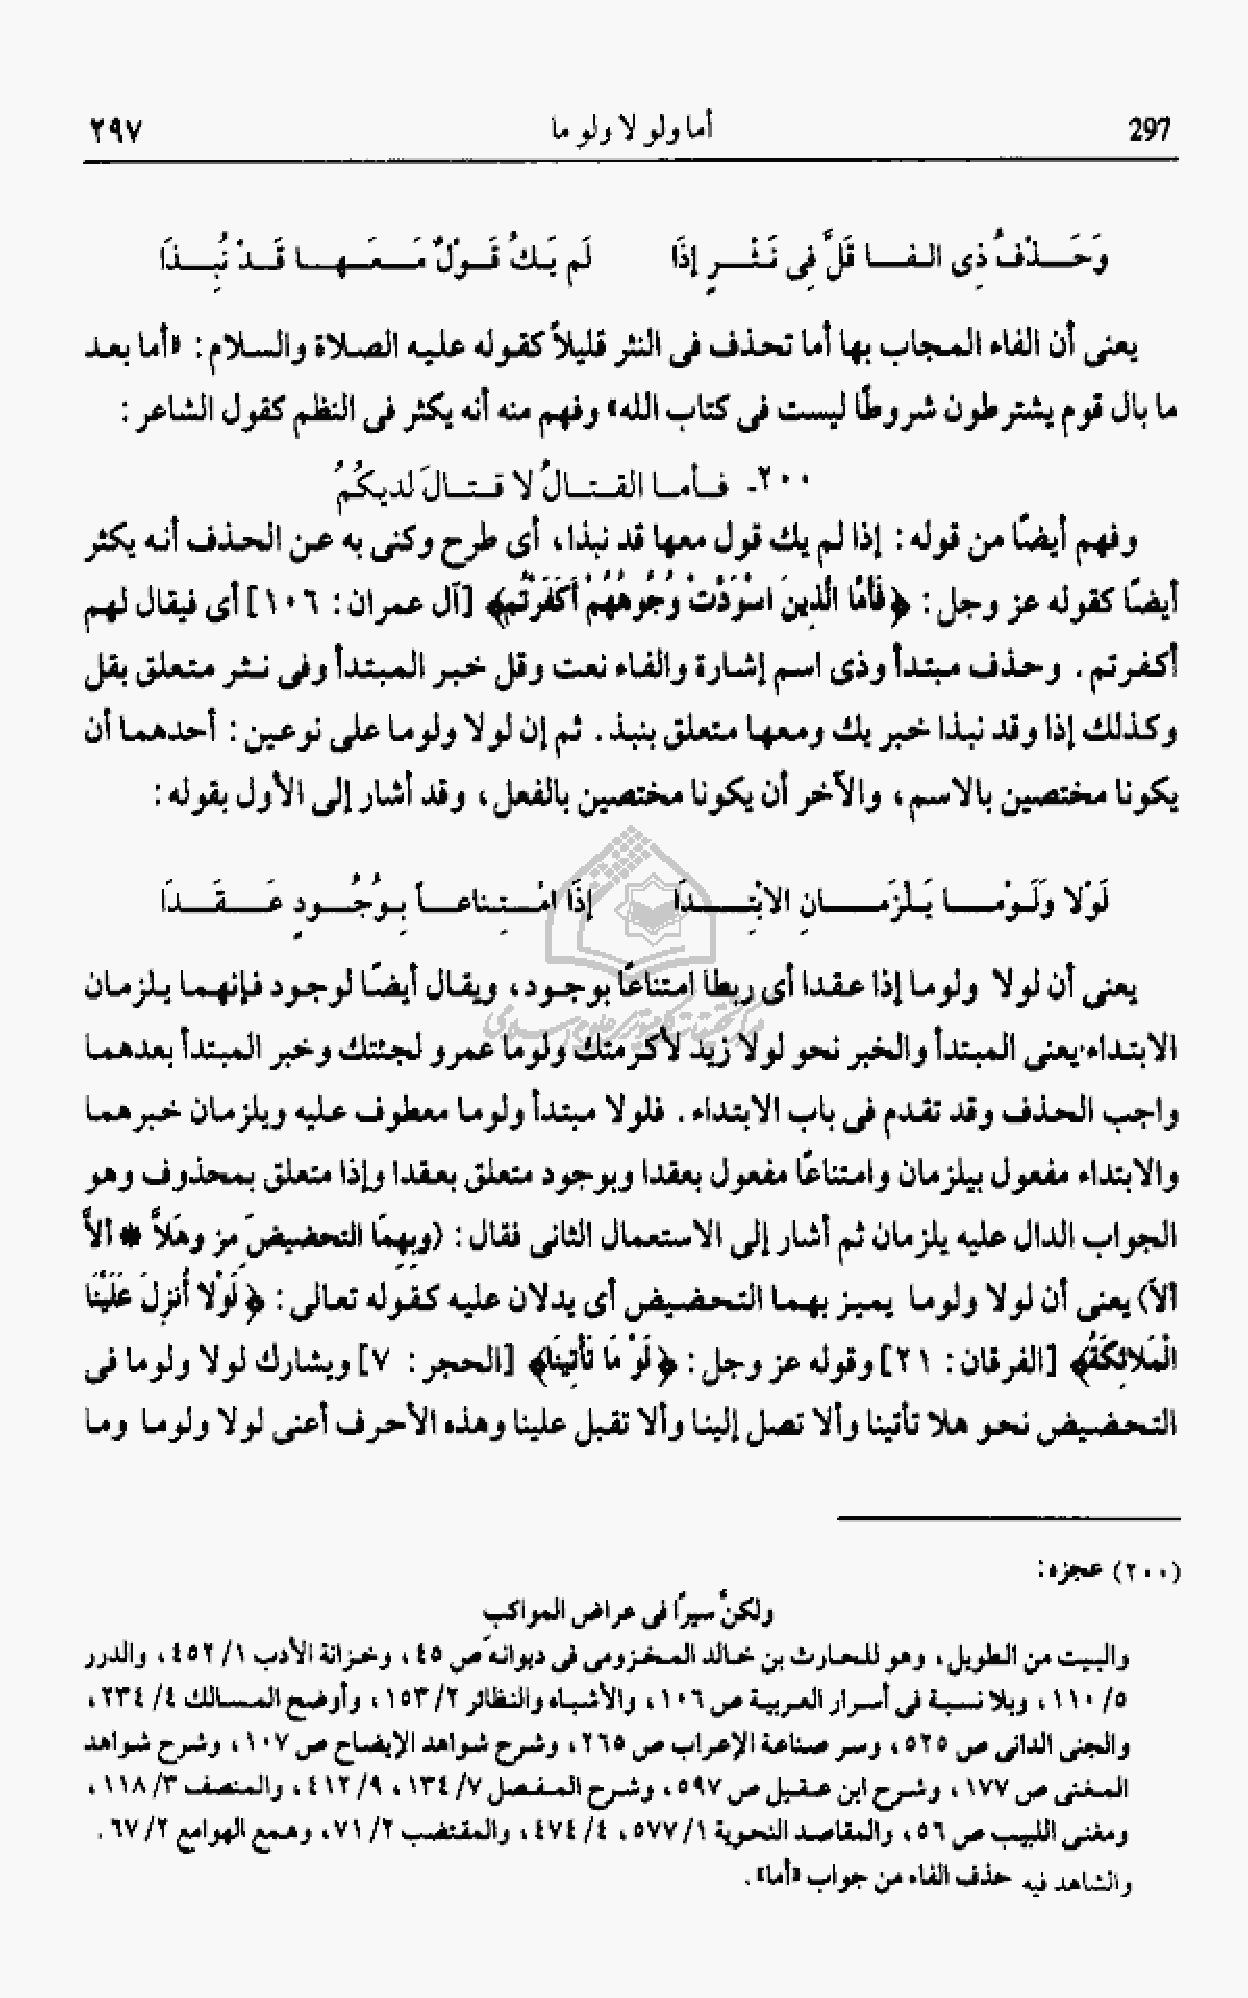 297
أما ولو لا ولو ما
٢٩٧
وَحَذْفُ ذِى الفا قَلَّ فِى نَثْرٍ إذَا لَم يَكُ قَوْلٌ مَعَهَا قَدْ نُبِذَا
يعنى أن الفاء المجاب بها أما تحذف فى النثر قليلاً كقوله عليه الصلاة والسلام: «أما بعد
ما بال قوم يشترطون شروطًا ليست فى كتاب الله» وفهم منه أنه يكثر فى النظم كقول الشاعر:
٢٠٠- فأما القتالُ لا قتالَ لديكُمُ
وفهم أيضًا من قوله: إذا لم يك قول معها قد نبذا، أى طرح وكنى به عن الحذف أنه يكثر
أيضًا كقوله عز وجل: ﴿فَأَمَّا الَّذِينَ اسْوَدَّتْ وُجُوهُهُمْ أَكَفَرْتُم﴾ [آل عمران: ١٠٦] أى فيقال لهم
أكفرتم. وحذف مبتدأ وذى اسم إشارة والفاء نعت وقل خبر المبتدأ وفى نثر متعلق بقل
وكذلك إذا وقد نبذا خبر يك ومعها متعلق بنبذ. ثم إن لولا ولوما على نوعين: أحدهما أن
يكونا مختصين بالاسم، والآخر أن يكونا مختصين بالفعل، وقد أشار إلى الأول بقوله:
لَوْلا وَلَوْمَا يَلْزَمَانِ الابْتِدَا إذَا امْتِناعاً بِوُجُودٍ عَقَدَا
يعنى أن لولا ولوما إذا عقدا أى ربطا امتناعًا بوجود، ويقال أيضًا لوجود فإنهما يلزمان
الابتداء يعنى المبتدأ والخبر نحو لولا زيد لأكرمتك ولوما عمرو لجئتك وخبر المبتدأ بعدهما
واجب الحذف وقد تقدم فى باب الابتداء. فلولا مبتدأ ولوما معطوف عليه ويلزمان خبرهما
والابتداء مفعول بيلزمان وامتناعًا مفعول بعقدا وبوجود متعلق بعقدا وإذا متعلق بمحذوف وهو
الجواب الدال عليه يلزمان ثم أشار إلى الاستعمال الثانى فقال: (وبِهِمَا التحضيضَ مِز وهَلاَّ * ألاَّ
ألاَ) يعنى أن لولا ولوما يميز بهما التحضيض أى يدلان عليه كقوله تعالى: ﴿لَوْلا أُنزِلَ عَلَيْنَا
الْمَلائِكَةُ﴾ [الفرقان: ٢١] وقوله عز وجل: ﴿لَوْ مَا تَأْتِينَا﴾ [الحجر: ٧] ويشارك لولا ولوما فى
التحضيض نحو هلا تأتينا وألا تصل إلينا وألا تقبل علينا وهذه الأحرف أعنى لولا ولوما وما
(٢٠٠) عجزه:
ولكنَّ سيرًا فى عراض المواكبِ
والبيت من الطويل، وهو للحارث بن خالد المخزومى فى ديوانه ص ٤٥، وخزانة الأدب ١/ ٤٥٢، والدرر
٥/ ١١٠، وبلا نسبة فى أسرار العربية ص ١٠٦، والأشباه والنظائر ٢/ ١٥٣، وأوضح المسالك ٤/ ٢٣٤،
والجنى الدانى ص ٥٢٥، وسر صناعة الإعراب ص ٢٦٥، وشرح شواهد الإيضاح ص ١٠٧، وشرح شواهد
المغنى ص ١٧٧، وشرح ابن عقيل ص ٥٩٧، وشرح المفصل ٧/ ١٣٤، ٩/ ٤١٢، والمنصف ٣/ ١١٨،
ومغنى اللبيب ص ٥٦، والمقاصد النحوية ١/ ٥٧٧، ٤/ ٤٧٤، والمقتضب ٢/ ٧١، وهمع الهوامع ٢/ ٦٧.
والشاهد فيه حذف الفاء من جواب «أما».